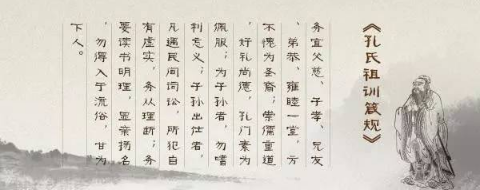 《孔氏祖训箴规》
务宜父慈、子孝、兄友
、弟恭、雍睦一堂，方
不愧为圣裔；崇儒重道
，好礼尚德，孔门素为
佩服；为子孙者，勿嗜
利忘义；子孙出仕者，
凡遇民间词讼，所犯自
有虚实，务从理断；务
要读书明理，显亲扬名
，勿得入于流俗，甘为
下人。